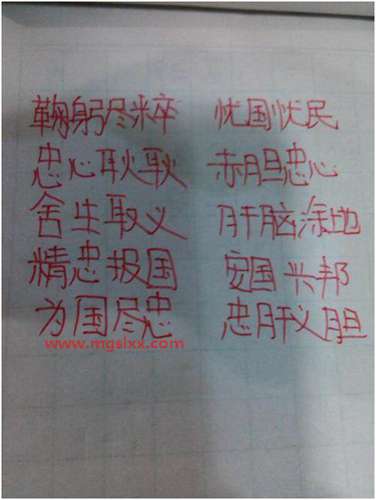 鞠躬尽粹 忧国忧民
忠心耿耿 赤胆忠心
舍生取义 肝脑涂地
精忠报国 安国兴邦
为国尽忠 忠肝义胆
www.mgslxx.com